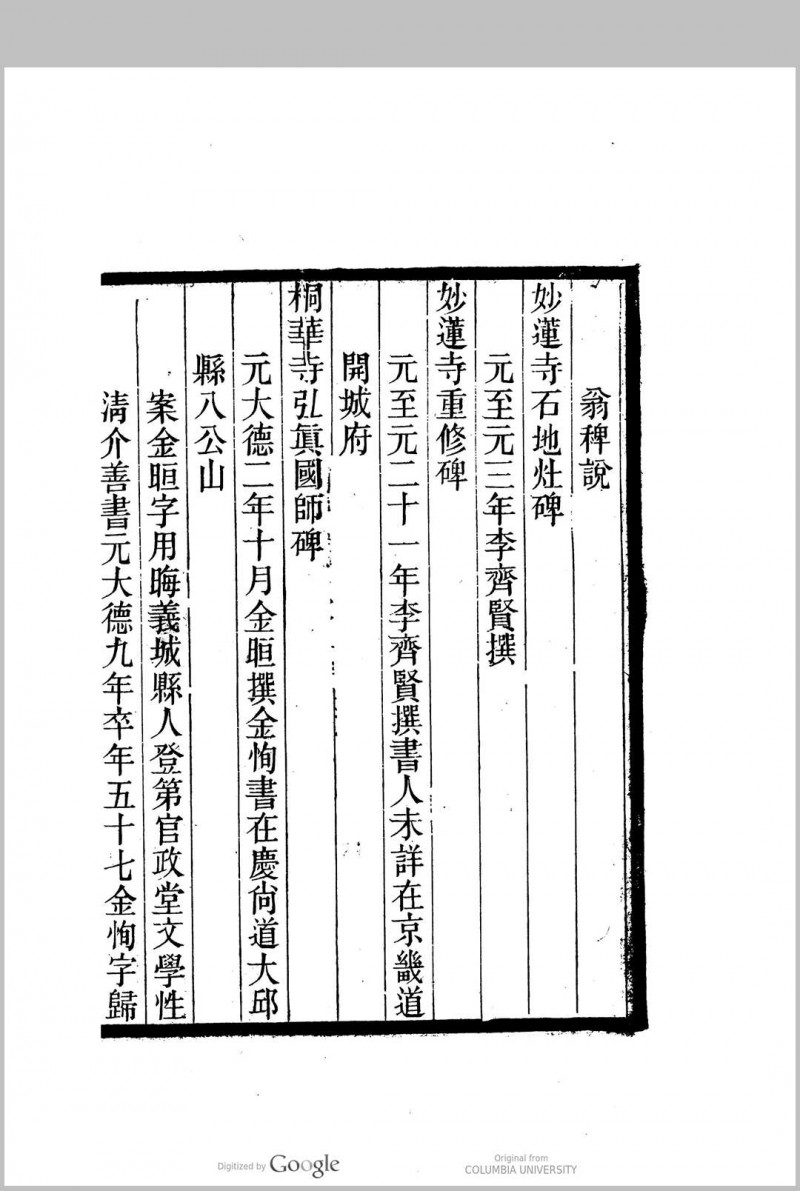 翁稗說
妙蓮寺石地灶碑
元至元三年李齊賢撰
妙蓮寺重修碑
元至元二十一年李齊賢撰書人未詳在京畿道
開城府
桐華寺弘眞國師碑
元大德二年十月金晅撰金恂書在慶尙道大邱
縣八公山
案金晅字用晦義城縣人登第官政堂文學性
清介善書元大德九年卒年五十七金恂字歸
Digitized by Google
Original from
COLUMBIA UNIVERSITY